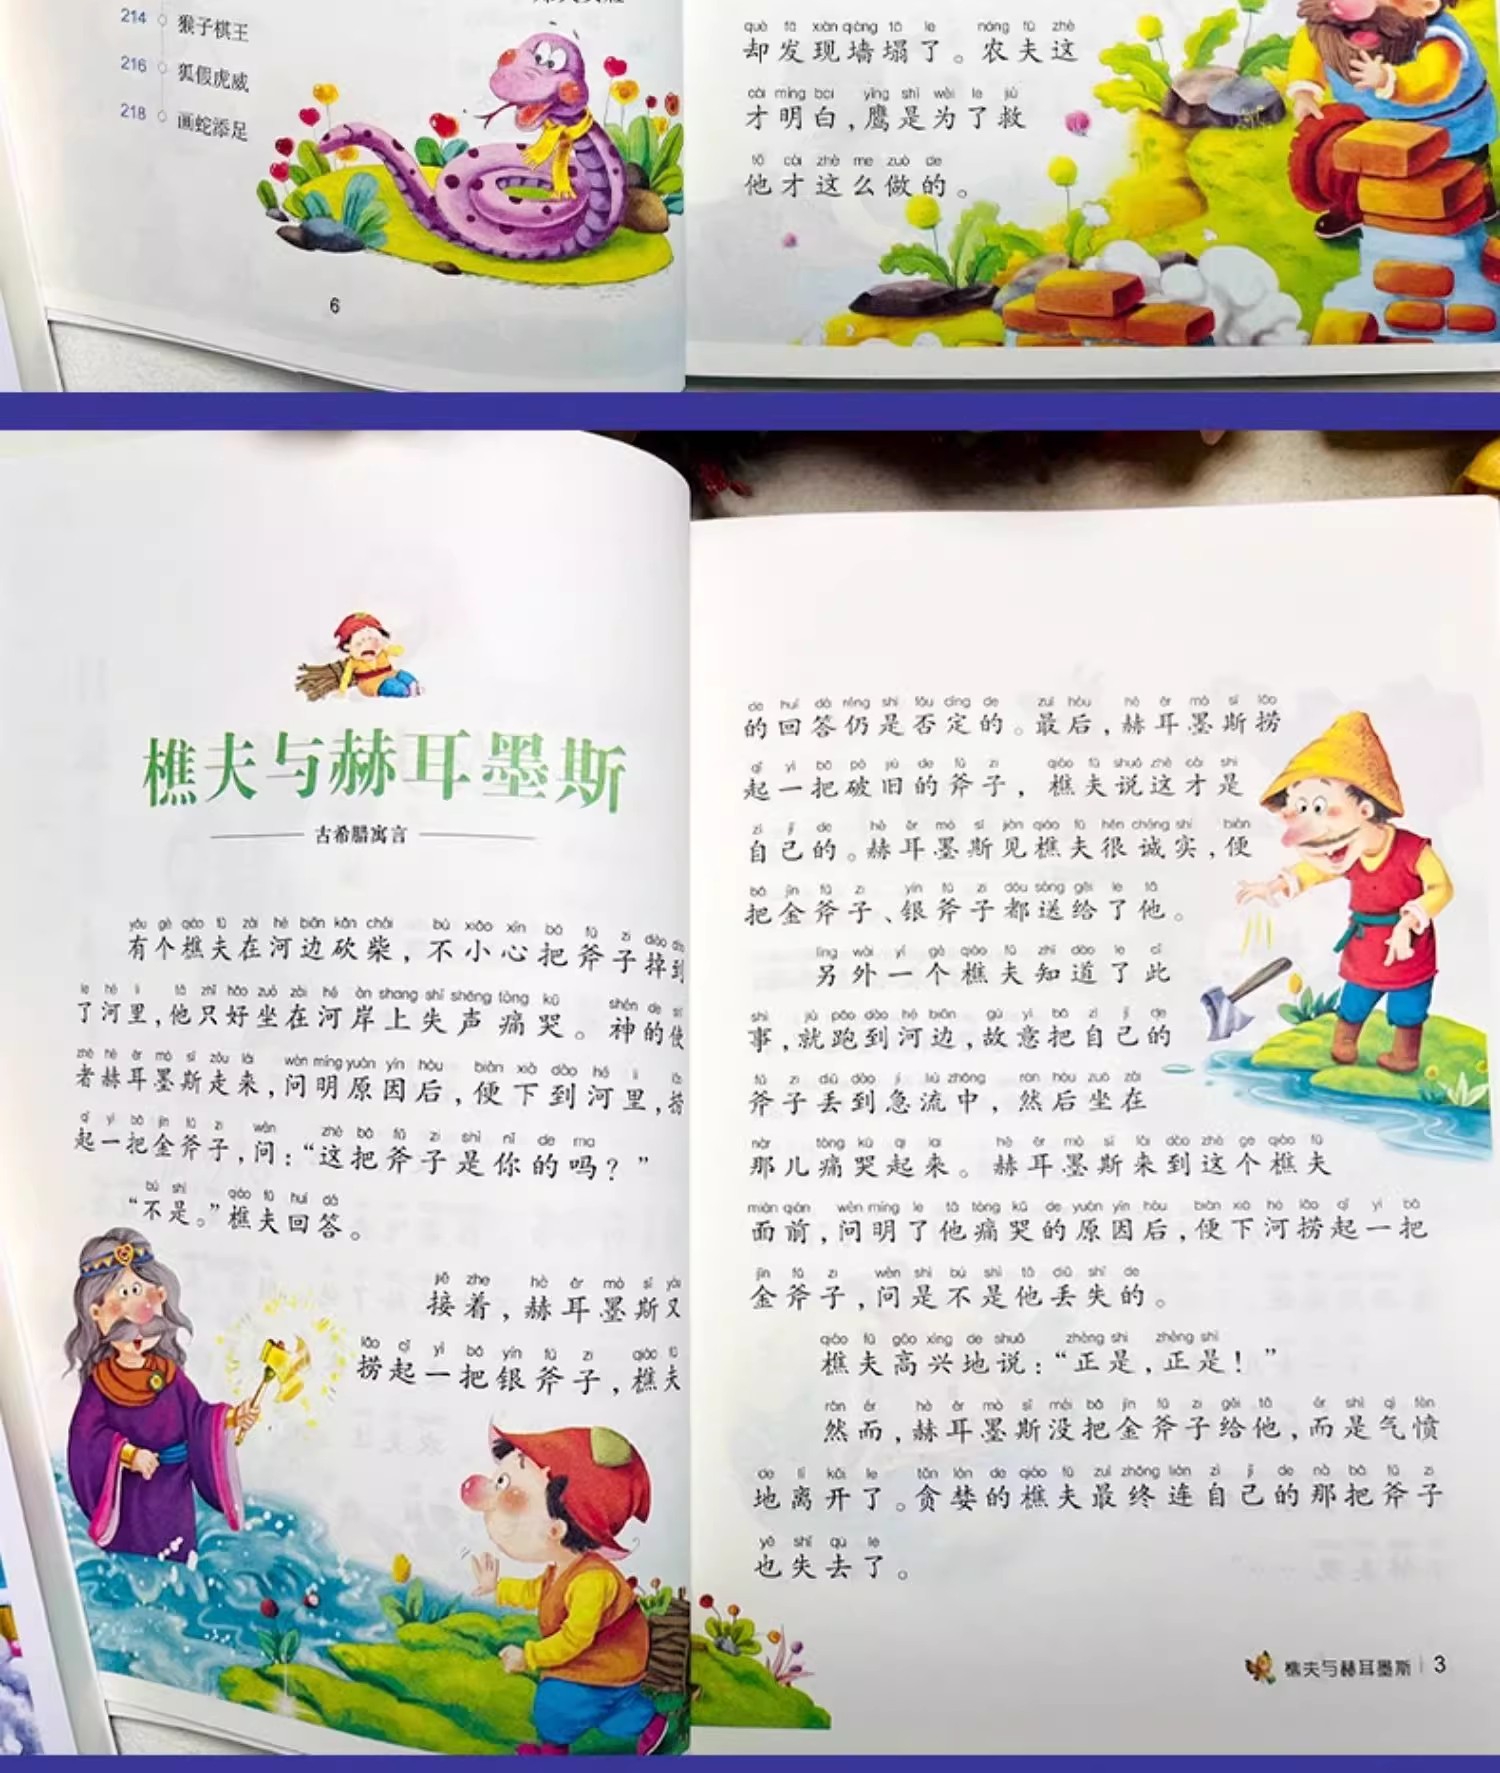 214 猴子棋王
216 狐假虎威
218 画蛇添足
6
què fā xiàn qiáng tā le nóng fū zhè
却发现墙塌了。农夫这
cái míng bai yīng shì wèi le jiù
才明白，鹰是为了救
tā cái zhè me zuò de
他才这么做的。
樵夫与赫耳墨斯
古希腊寓言
yǒu gè qiáo fū zài hé biān kǎn chái bù xiǎo xīn bǎ fǔ zi diào dào
有个樵夫在河边砍柴，不小心把斧子掉到
le hé lǐ tā zhǐ hǎo zuò zài hé àn shang shī shēng tòng kū shén de shǐ
了河里，他只好坐在河岸上失声痛哭。神的使
zhě hè ěr mò sī zǒu lái wèn míng yuán yīn hòu biàn xià dào hé lǐ lāo
者赫耳墨斯走来，问明原因后，便下到河里，捞
qǐ yì bǎ jīn fǔ zi wèn zhè bǎ fǔ zi shì nǐ de ma
起一把金斧子，问：“这把斧子是你的吗？”
bú shì qiáo fū huí dá
“不是。”樵夫回答。
jiē zhe hè ěr mò sī yòu
接着，赫耳墨斯又
lāo qǐ yì bǎ yín fǔ zi qiáo fū
捞起一把银斧子，樵夫
de huí dá réng shì fǒu dìng de zuì hòu hè ěr mò sī lāo
的回答仍是否定的。最后，赫耳墨斯捞
qǐ yì bǎ pò jiù de fǔ zi qiáo fū shuō zhè cái shì
起一把破旧的斧子，樵夫说这才是
zì jǐ de hè ěr mò sī jiàn qiáo fū hěn chéng shí biàn
自己的。赫耳墨斯见樵夫很诚实，便
bǎ jīn fǔ zi yín fǔ zi dōu sòng gěi le tā
把金斧子、银斧子都送给了他。
lìng wài yí gè qiáo fū zhī dào le cǐ
另外一个樵夫知道了此
shì jiù pǎo dào hé biān gù yì bǎ zì jǐ de
事，就跑到河边，故意把自己的
fǔ zi diū dào jí liú zhōng rán hòu zuò zài
斧子丢到急流中，然后坐在
nàr tòng kū qi lai hè ěr mò sī lái dào zhè ge qiáo fū
那儿痛哭起来。赫耳墨斯来到这个樵夫
miàn qián wèn míng le tā tòng kū de yuán yīn hòu biàn xià hé lāo qǐ yì bǎ
面前，问明了他痛哭的原因后，便下河捞起一把
jīn fǔ zi wèn shì bú shì tā diū shī de
金斧子，问是不是他丢失的。
qiáo fū gāo xìng de shuō zhèng shì zhèng shì
樵夫高兴地说：“正是，正是！”
rán ér hè ěr mò sī méi bǎ jīn fǔ zi gěi tā ér shì qì fèn
然而，赫耳墨斯没把金斧子给他，而是气愤
de lí kāi le tān lán de qiáo fū zuì zhōng lián zì jǐ de nà bǎ fǔ zi
地离开了。贪婪的樵夫最终连自己的那把斧子
yě shī qù le
也失去了。
樵夫与赫耳墨斯 | 3